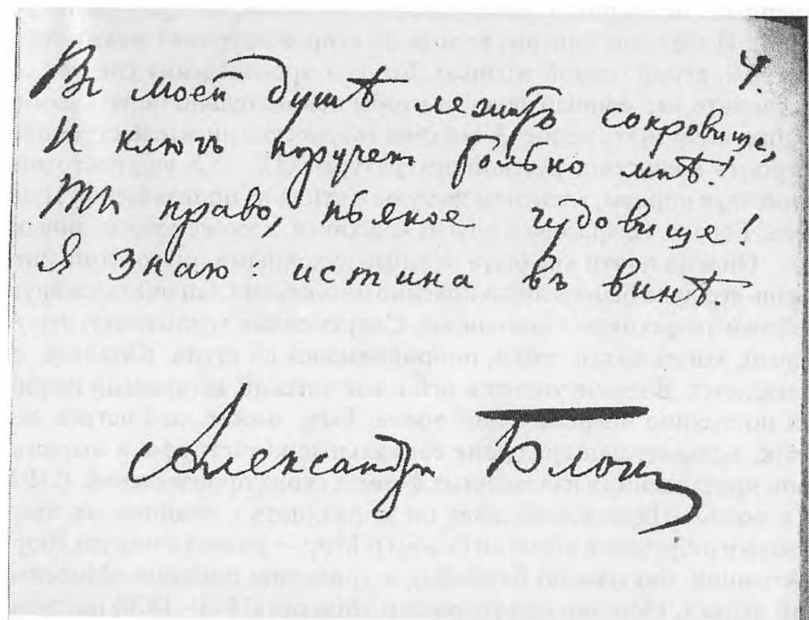 Въ моей душѣ лежитъ сокровище
И ключъ порученъ только мнѣ!
Ты право, пьяное чудовище!
Я знаю: истина въ винѣ.
Александръ Блокъ